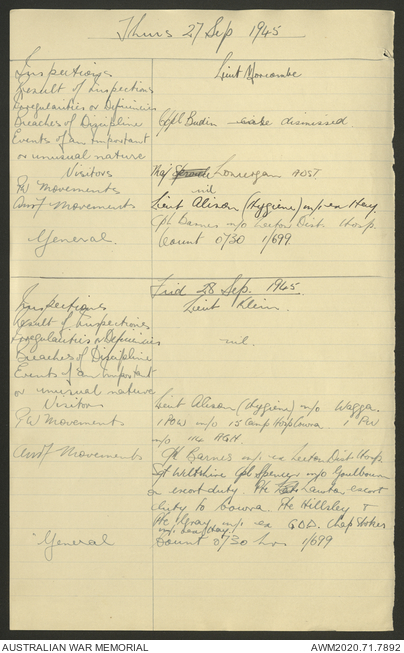 Thurs 27 Sep 1945
Inspections Lieut Moncombe
Result of Inspections
Irregularities or Deficiencies
Breaches of Discipline Cpl Budin case dismissed
Events of an Important
or unusual nature
Visitors Maj Lonregan ADST
PW Movements nil
Aust Movements Lieut Alison (Hygiene) m/i ex Hay.
Cpl Barnes m/o Leeton Dist Hosp.
General. Count 0730 1/699
Frid 28 Sep. 1945
Inspections Lieut Klein.
Result of Inspections
Irregularities or Deficiencies nil.
Breaches of Discipline
Events of an Important
or unusual nature
Visitors Lieut Alison (Hygiene) m/o Wagga.
PW Movements 1 POW m/o 15 Camp Hosp Cowra 1 PW
m/o 114 AGH.
Aust Movements Cpl Barnes m/i ex Leeton Dist Hosp
Sgt Wiltshire Cpl Spencer m/o Goulbourn
on escort duty. Pte Lawton escort
duty to Cowra. Pte Hillsley &
Pte Ugray m/i ex GDD. Chap Stokes
m/i ex Hay
General Count 0730 hrs 1/699
AUSTRALIAN WAR MEMORIAL AWM2020.71.7892